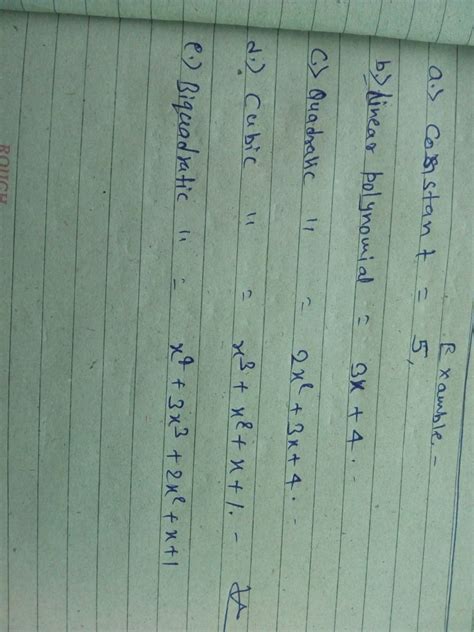 Example -
a.) Constant = 5,
b) Linear polynomial = 3x + 4. -
c.) Quadratic " = 2x² + 3x + 4. -
d.) Cubic " = x³ + x² + x + 1. -
e.) Biquadratic " = x⁴ + 3x³ + 2x² + x + 1
ROUGH